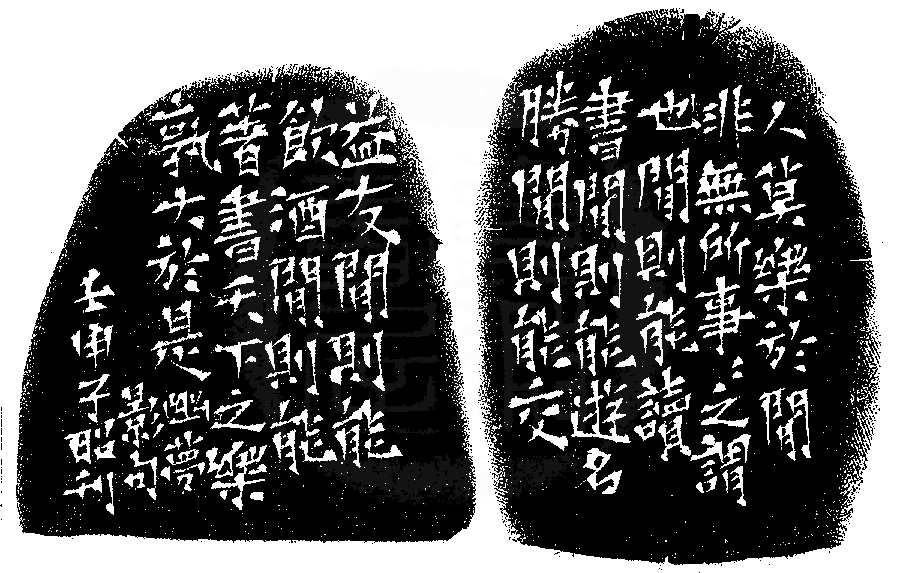 人莫樂於閒
非無所事〻之謂
也閒則能讀
書閒則能遊名
勝閒則能交
益友閒則能
飲酒閒則能
著書天下之樂
孰大於是幽夢
影句
壬申子昭刊